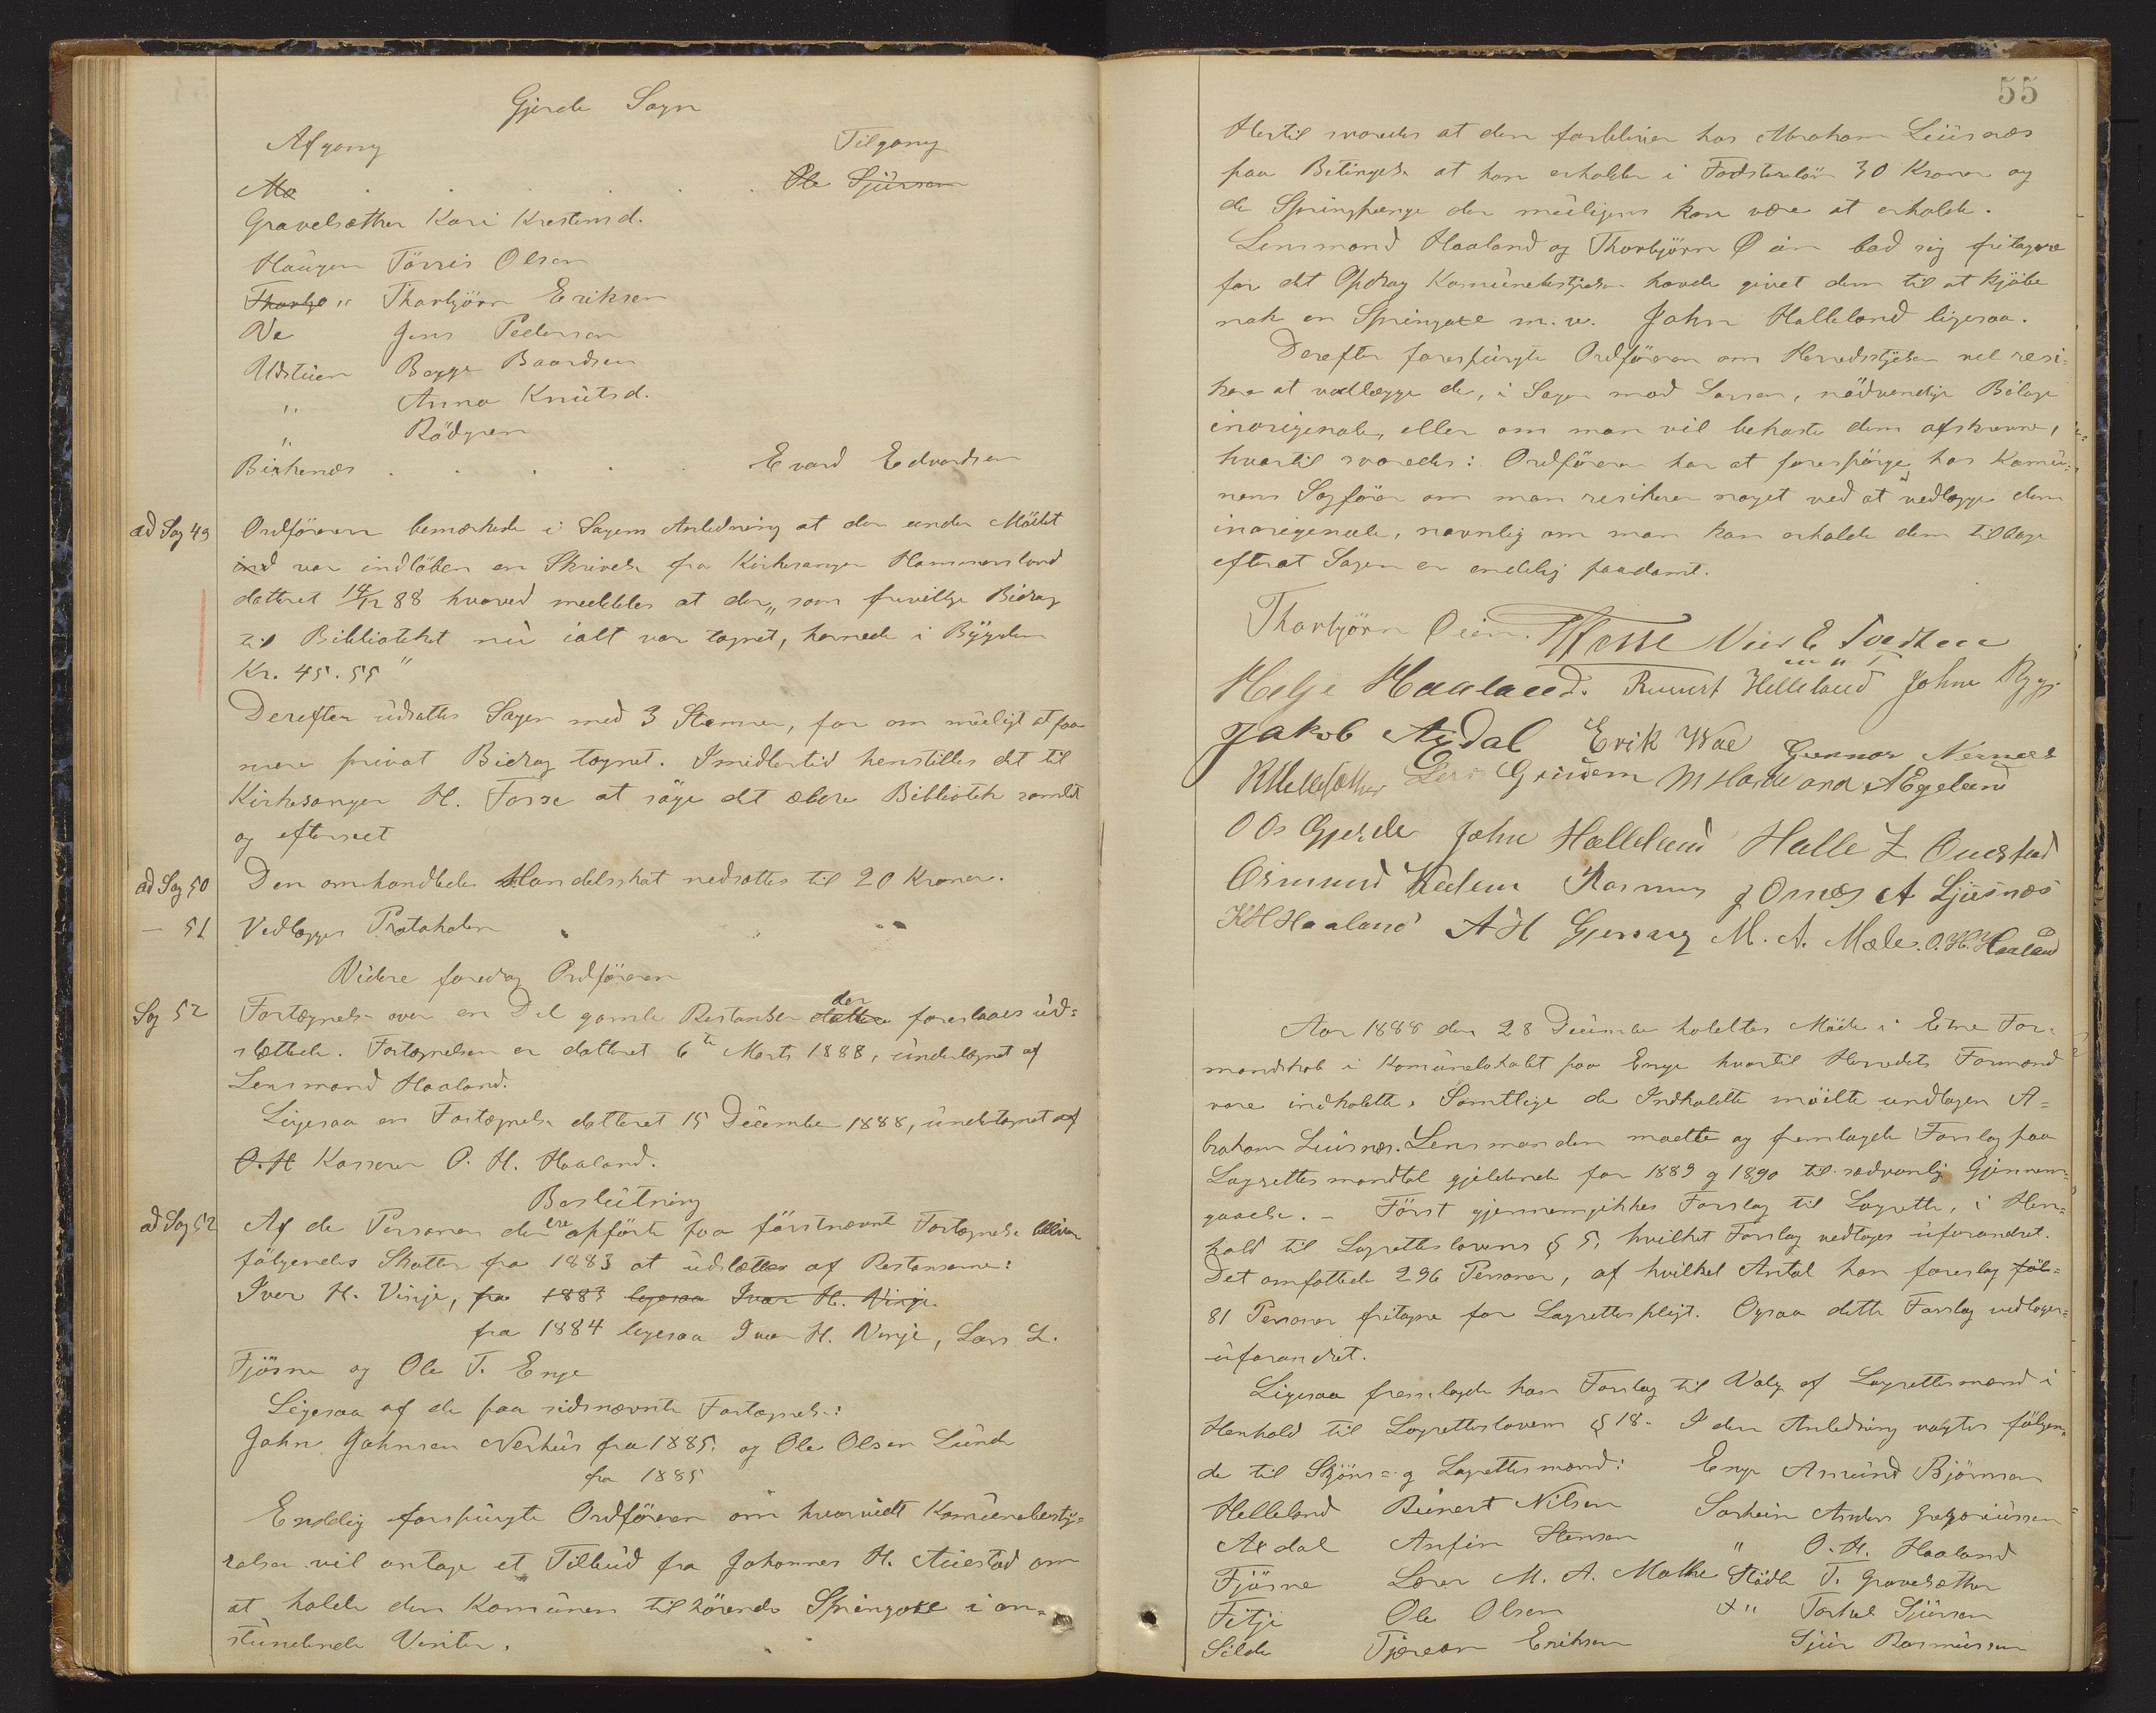 Gjerde Sogn
Afgang Tilgang
Mo . . . . . . Ole Sjürsen
Gravelsæther Kari Krestensd.
Haügen Törris Olsen
Thorbjo " Thorbjörn Eriksen
Va Jens Pedersen
Udstüen Bagge Baardsen
" Anna Knütsd.
" Rödgren
Birkenæs . . . . . Evard Edvardsen
ad Sag 49 Ordföreren bemærkede i Sagens Anledning at der under Mödet
ind var indlöben en Skrivelse fra Kirkesanger Hammersland
datteret 14/12 88 hvorved meddeles at der „som frivillige Bidrag
til Bibliotheket nü ialt var tegnet, hernede i Bÿgden
Kr. 45.55"
Derefter üdsattes Sagen med 3 Stemmer, for om müeligt at faa
mere privat Bidrag tegnet. Imidlertid henstilles det til
Kirkesanger H. Fosse at söge det ældre Bibliotek samlet
og efterseet
ad Sag 50 Den omhandlede Handelsskat nedsattes til 20 Kroner.
— 51 Vedlægges Protokolen
Videre foredrog Ordföreren
Sag 52 Fortegnelse over en Del gamle Restantser dattere der foreslaaes üd=
slettede. Fortegnelsen er datteret 6te Marts 1888, ündertegnet af
Lensmand Haaland.
Ligesaa en Fortegnelse datteret 15 December 1888, ündertegnet af
O. H Kasserer O. H. Haaland.
Beslütning
ad Sag 52 Af de Personer der ere opförte paa förstnævnte Fortegnelse bliver
fölgendes Skatter fra 1883 at üdslettes af Restanserne:
Iver H. Vinje, fra 1883 ligesaa Ivar H. Vinje.
fra 1884 ligesaa Iver H. Vinje, Lars L.
Fjösne og Ole T. Enge
Ligesaa af de paa sidsnævnte Fortegnelse:
John Johnsen Nerhüs fra 1885. og Ole Olsen Lünde
fra 1885
Enddelig forspürgte Ordföreren om hvorvidt Komünebesty=
relsen vil antage et Tilbüd fra Johannes H. Aüestad om
at holde den Komünen tilhörende Springoxe i an=
stündende Vinter.
55
Hertil svaredes at den forbliver hos Abraham Leüsnæs
paa Betingelse at han erholder i Fodsterlön 30 Kroner og
de Springpenge der müeligens kan være at erholde.
Lensmand Haaland og Thorbjörn Øien bad sig fritagne
for det Opdrag Komünebestyrelsen havde givet dem til at kjöbe
nok en Springoxe m.v. John Halleland ligesaa.
Derefter forespürgte Ordföreren om Herredsstyrelsen vil resi=
kere at vedlægge de, i Sagen mod Larsen, nödvendige Bilage
inorigenale, eller om man vil bekoste dem afskrevne,
hvortil svaredes: Ordföreren har at forespörge hos Komü=
nens Sagförer om man resikerer noget ved at vedlægge dem
inorigenale, navnlig om man kan erholde dem tilbage
efterat Sagen er endelig paadömt.
Thorbjörn Øien. HFosse Nils E Tvedten
Helje Haaland. Reinert Helleland John Rygg
Jakob Axdal Erik Wae Gunnar Nernæs
RMellesæther Lars Grindem M Haaland A Egeland
O Os Gjerde John Halleland Halle L Onestad
Osmund Kalem Rasmus J Ornes A Ljüsnæs
KH Haaland A H Gjersvig M. A. Mæle. O. H. Haaland
Aar 1888 den 28 December holdtes Möde i Etne For=
mandskab i Komünelokalet paa Enge hvortil Herredets Formænd
vare indkaldte. Samtlige de Indkaldte mödte undtagen A=
braham Leüsnæs. Lensmanden mødte og fremlagde Forslag paa
Lagrettesmandtal gjeldende for 1889 og 1890 til sædvanlig Gjennem=
gaaelse. — Först gjennemgikkes Forslag til Lagrette, i Hen=
hold til Lagretteslovens § 5. hvilket Forslag vedtoges üforandret.
Det omfattede 296 Personer, af hvilket Antal han foreslog föl=
81 Personer fritagne for Lagrettespligt. Ogsaa dette Forslag vedtoges
üforandret.
Ligesaa fremlagde han Forslag til Valg af Lagrettesmænd i
Henhold til Lagretteslovens § 18. I den Anledning valgtes fölgen=
de til Skjöns= og Lagrettesmænd: Enge Amünd Björnsen
Helleland Reinert Nilsen Sørheim Anders Gregoriüssen
Axdal Anfin Stensen " O. H. Haaland
Fjösne Lærer M. A. Mæhle Stödle T. Gravelsæther
Fitje Ole Olsen x " Torkel Sjürsen
Silde Tjeran Eriksen Sjür Rasmüssen